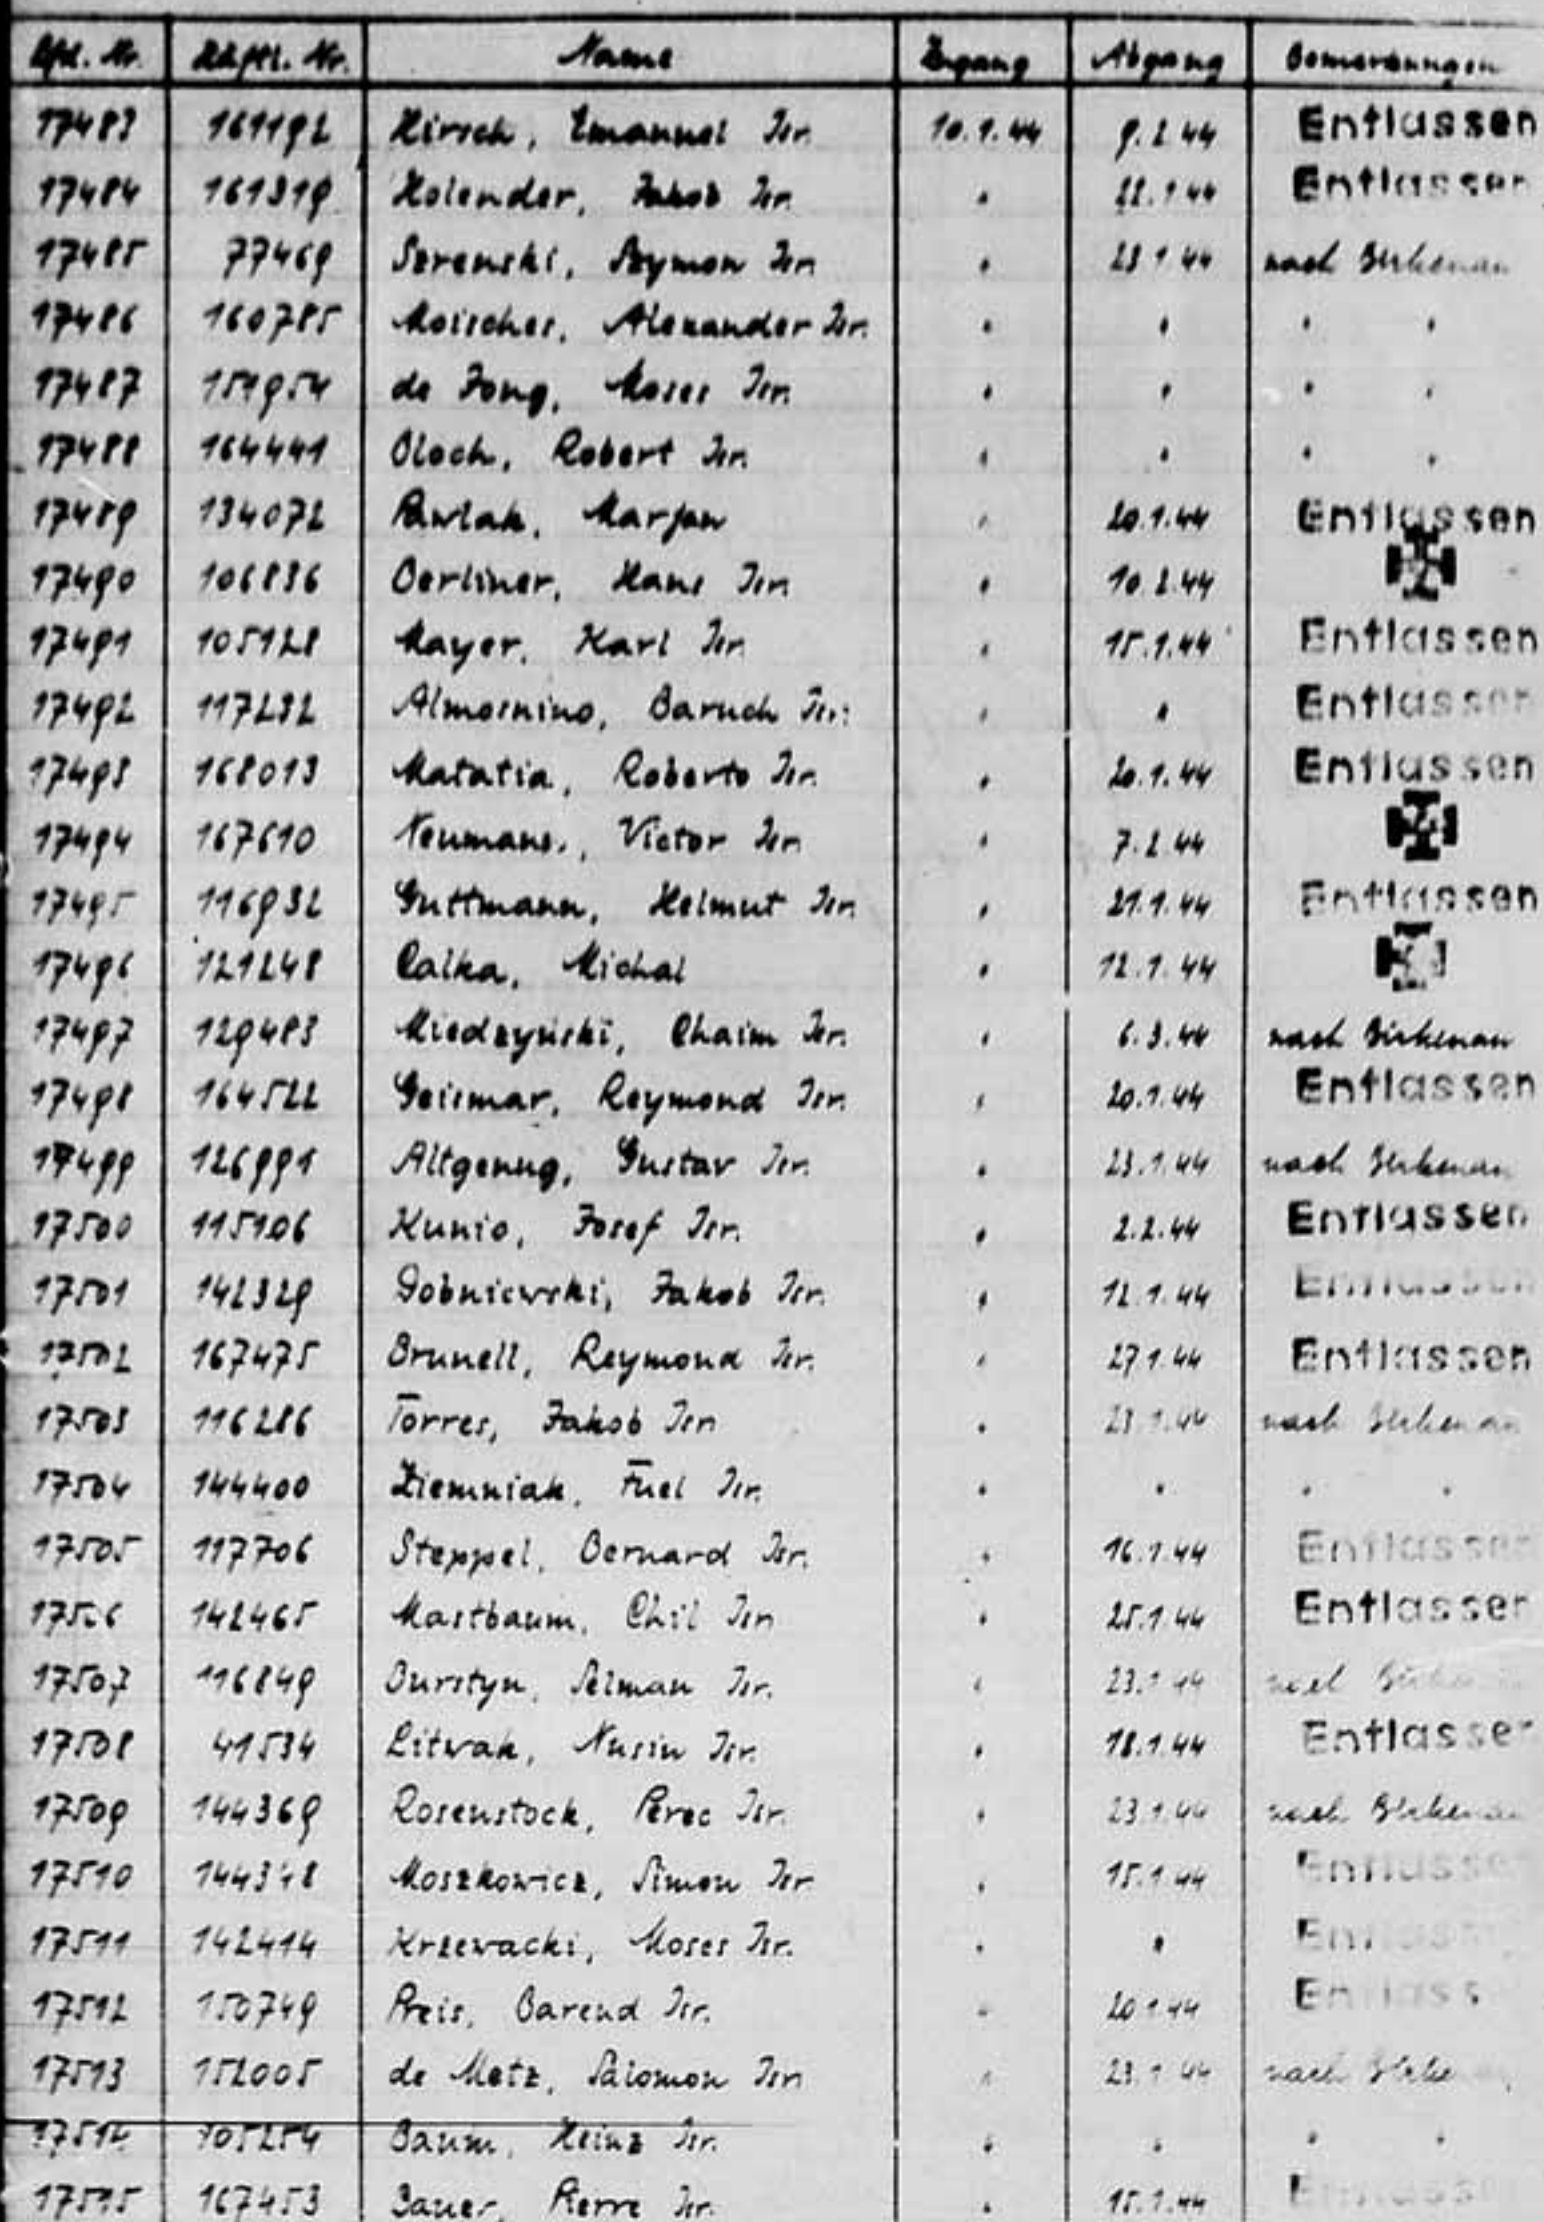 Lfd. Nr. Häftl. Nr. Name Zugang Abgang Bemerkungen
17483 161192 Hirsch, Emanuel Isr. 10.1.44 9.2.44 Entlassen
17484 161319 Holender, Jakob Isr. " 22.1.44 Entlassen
17485 77469 Serenski, Szymon Isr. " 23.1.44 nach Birkenau
17486 160785 Moisches, Alexander Isr. " " " "
17487 151954 de Jong, Moses Isr. " " " "
17488 164441 Bloch, Robert Isr. " " " "
17489 134072 Pawlak, Marjan " 20.1.44 Entlassen
17490 106836 Berliner, Hans Isr. " 10.2.44
17491 105128 Mayer, Karl Isr. " 15.1.44 Entlassen
17492 117232 Almosnino, Baruch Isr. " " Entlassen
17493 168013 Matatia, Roberto Isr. " 20.1.44 Entlassen
17494 167610 Neumann, Victor Isr. " 7.2.44
17495 116932 Guttmann, Helmut Isr. " 21.1.44 Entlassen
17496 121248 Calka, Michal " 12.1.44
17497 129483 Miedzyński, Chaim Isr. " 6.3.44 nach Birkenau
17498 164522 Geismar, Reymond Isr. " 20.1.44 Entlassen
17499 126991 Altgenug, Gustav Isr. " 23.1.44 nach Birkenau
17500 115106 Kunio, Josef Isr. " 2.2.44 Entlassen
17501 142329 Gobniewski, Jakob Isr. " 12.1.44 Entlassen
17502 167475 Brunell, Reymond Isr. " 27.1.44 Entlassen
17503 116286 Torres, Jakob Isr. " 23.1.44 nach Birkenau
17504 144400 Ziemniak, Fuel Isr. " " " "
17505 117706 Steppel, Bernard Isr. " 16.1.44 Entlassen
17506 142465 Mastbaum, Chil Isr. " 25.1.44 Entlassen
17507 116849 Burstyn, Selman Isr. " 23.1.44 nach Birkenau
17508 41534 Litwak, Nusin Isr. " 18.1.44 Entlassen
17509 144369 Rosenstock, Perec Isr. " 23.1.44 nach Birkenau
17510 144348 Moszkowicz, Simon Isr. " 15.1.44 Entlassen
17511 142414 Krzewacki, Moses Isr. " " Entlassen
17512 150749 Preis, Barend Isr. " 20.1.44 Entlassen
17513 152005 de Metz, Salomon Isr. " 23.1.44 nach Birkenau
17514 105254 Baum, Heinz Isr. " " " "
17515 167453 Bauer, Pierre Isr. " 15.1.44 Entlassen